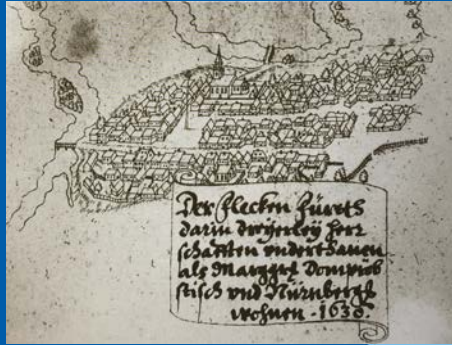 Der Flecken Fürth
darin dreyerley herr
schafften vnderthanen
als Marggrf Domprob
stisch vnd Nürnbergs
wohnen - 1630.